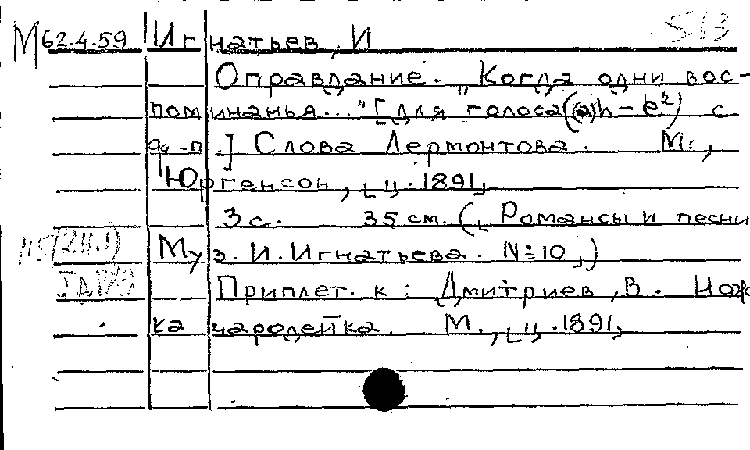 М 62.4.59 Игнатьев, И 513
Оправдание. „Когда одни вос-
поминанья..." [для голоса (a)h-e²) с
ф-п.] Слова Лермонтова. М.,
Юргенсон, ц. 1891,
3 с. 35 см. („Романсы и песни
Муз. И. Игнатьева. № 10„)
Приплет. к: Дмитриев, В. Нож
ка чародейка. М., ц. 1891,